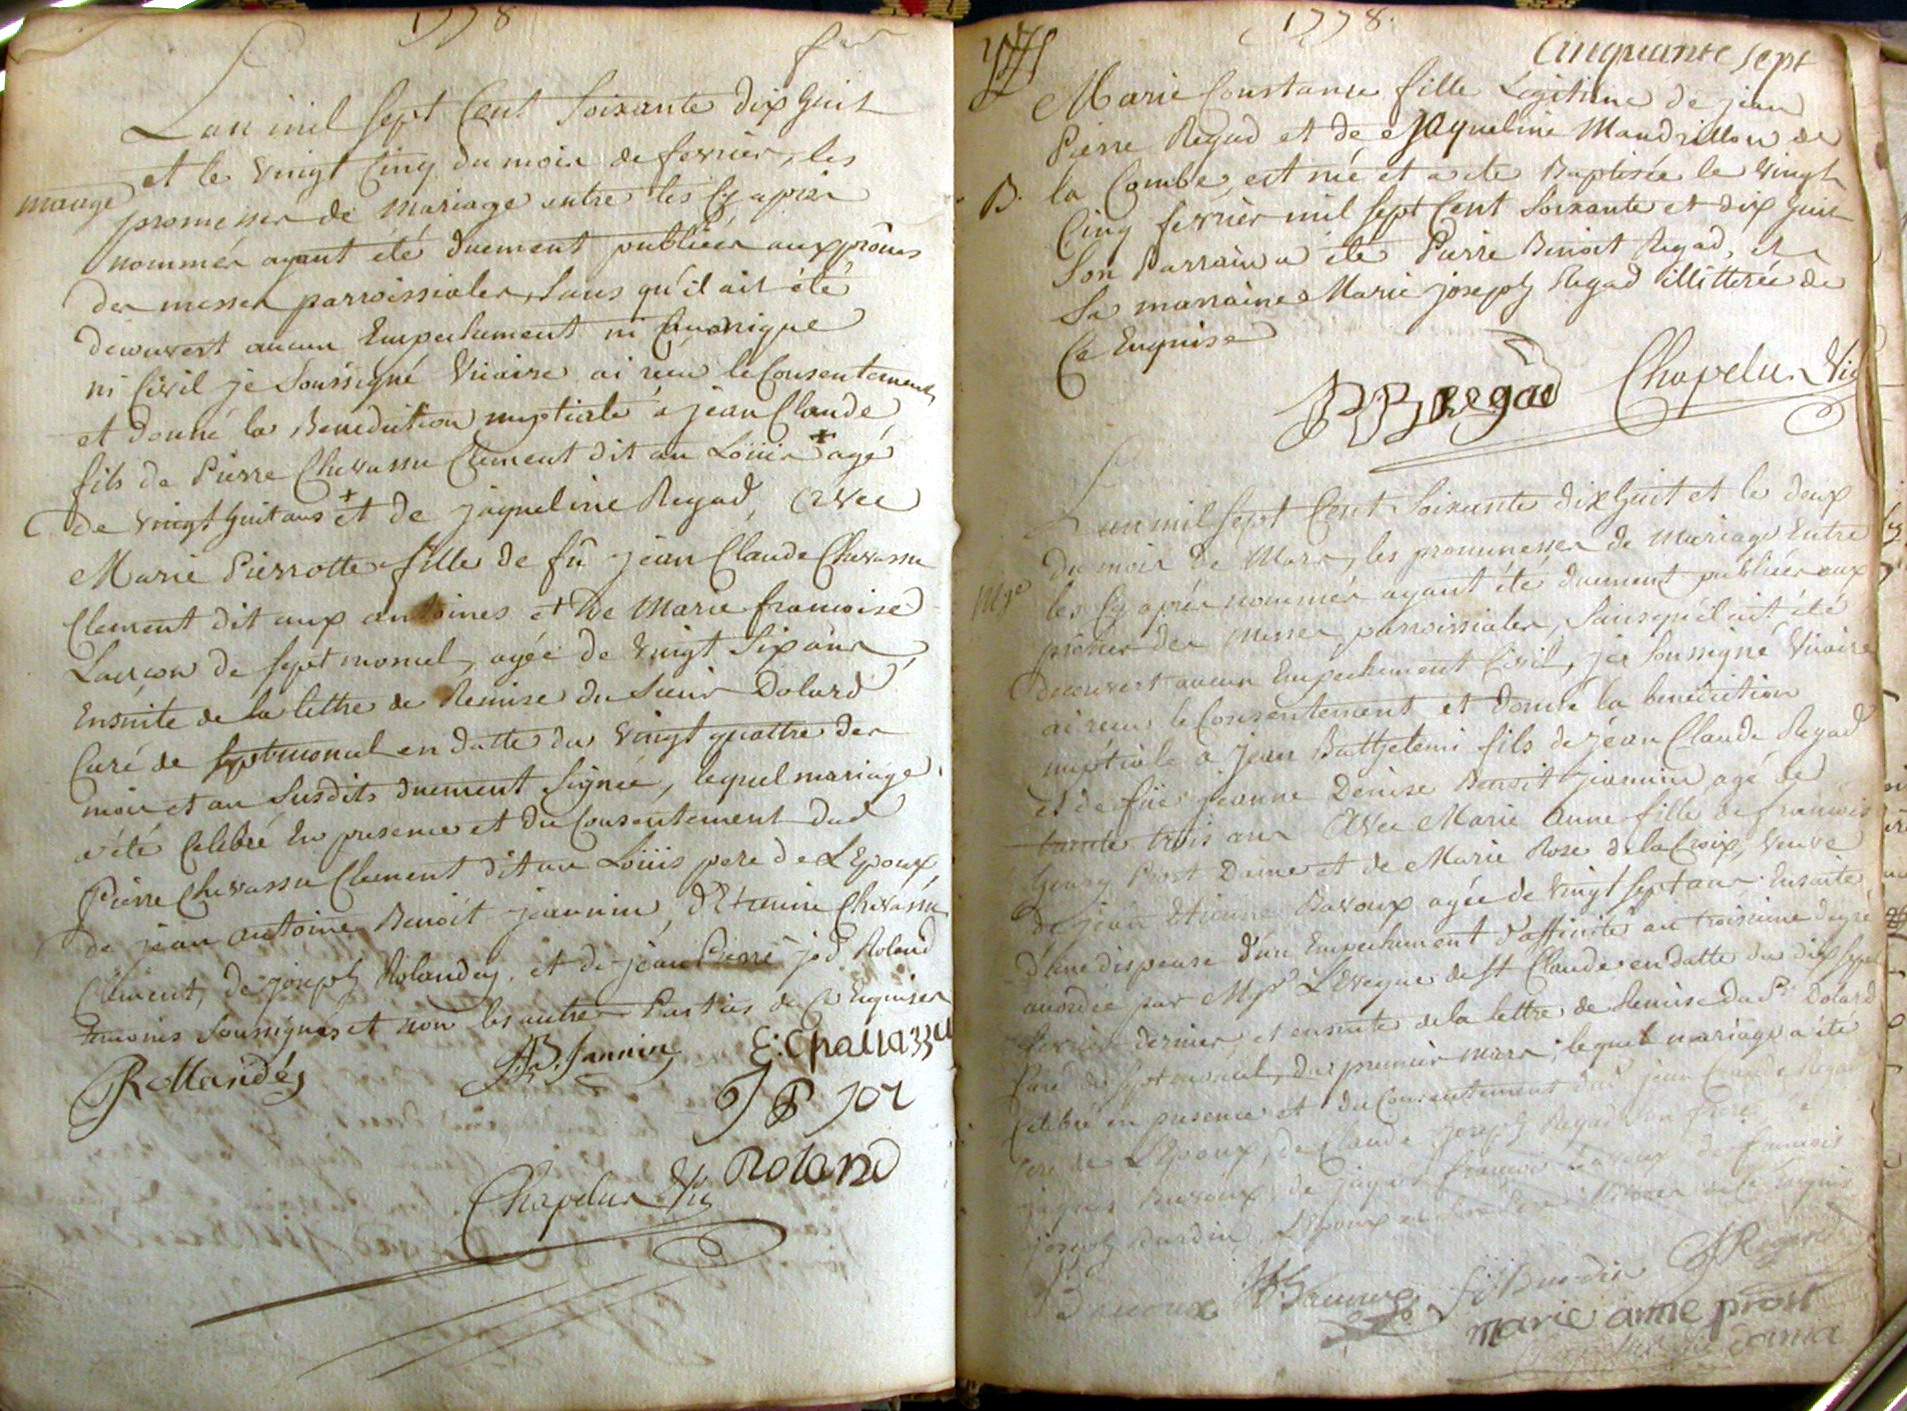 1778
L'an mil sept Cent Soixante dix huit
et le vingt Cinq du mois de fevrier, les
mariage
promesses de Mariage entre les Cy apres
nommés ayant été duement publiées aux prônes
des messes parroissiales, sans qu'il ait été
decouvert aucun Empechement ni Canonique
ni Civil je Soussigné Vicaire ai reçu le Consentement
et donné la Benediction nuptiale à jean Claude
fils de Pierre Chevassu Clement dit au Loüis + agé
de vingt huit ans + et de jaqueline Regad, avec
Marie Pierrotte fille de fû jean Claude Chevassu
Clement dit aux antoines et de Marie francoise
Lançon de septmoncel, agée de vingt Six ans,
Ensuite de la lettre de Remise du Sieur Dolard
Curé de septmoncel en datte du vingt quattre des
mois et an Susdits duement Signée, lequel mariage
a été Celebré En presence et du Consentement dud
Pierre Chevassu Clement dit au Loüis pere de L'Epoux,
de jean antoine Benoit jeannin, d'Etienne Chevassu
Clement, de joseph Rolandez, et de jean Pierre jos Roland
temoins Soussignés et non les autres Parties de Ce Enquises
Rollandés
JA B. Jannin
E: Chavassu
J P JOZ
Roland
Chapelu Vic
1778.
Cinquante sept
Marie Constance fille Legitime de jean
Pierre Regad et de Jaqueline Mandrillon de
B.
la Combe, est née et a été Baptisée le vingt
Cinq fevrier mil sept Cent Soixante et dix huit
Son Parrain a été Pierre Benoit Regad, et
Sa marraine Marie joseph Regad illitterée de
Ce Enquise
PB Regad
Chapelu Vic
L'an mil sept Cent Soixante dix huit et le deux
du mois de Mars, les prommesses de Mariage Entre
Mge
les Cy après nommés ayant été duement publiées aux
prônes des Messes parroissiales, Sans qu'il ait été
decouvert aucun Empechement Civil, je Soussigné Vicaire
ai reçu le Consentement et donné la benediction
nuptiale à jean Batthelemi fils de jean Claude Regad
et de fûe jeanne Denise Benoit jeannin agé de
trente trois ans avec Marie Anne fille de francois
henry Prost Dame et de Marie Rose de la Croix, veuve
de jean Etienne Bavoux agée de vingt sept ans. Ensuite
d'une dispense d'un Empechement d'affinité au troisieme degré
accordée par Mgr L'Eveque de St Claude en datte du dix sept
fevrier dernier, et ensuite de la lettre de Remise du Sr Dolard
Curé de septmoncel, du premier mars; lequel mariage a été
Celebré en presence et du Consentement dud jean Claude Regad
Pere de L'Epoux, de Claude joseph Regad son frere
jaques Bavoux, de jaques francois Bavoux de francois
joseph Burdin, L'Epoux et son Pere illiterés de Ce Enquis
Bavoux
JF Bavoux
fj Burdin
CJ Regad
marie anne prost
dama